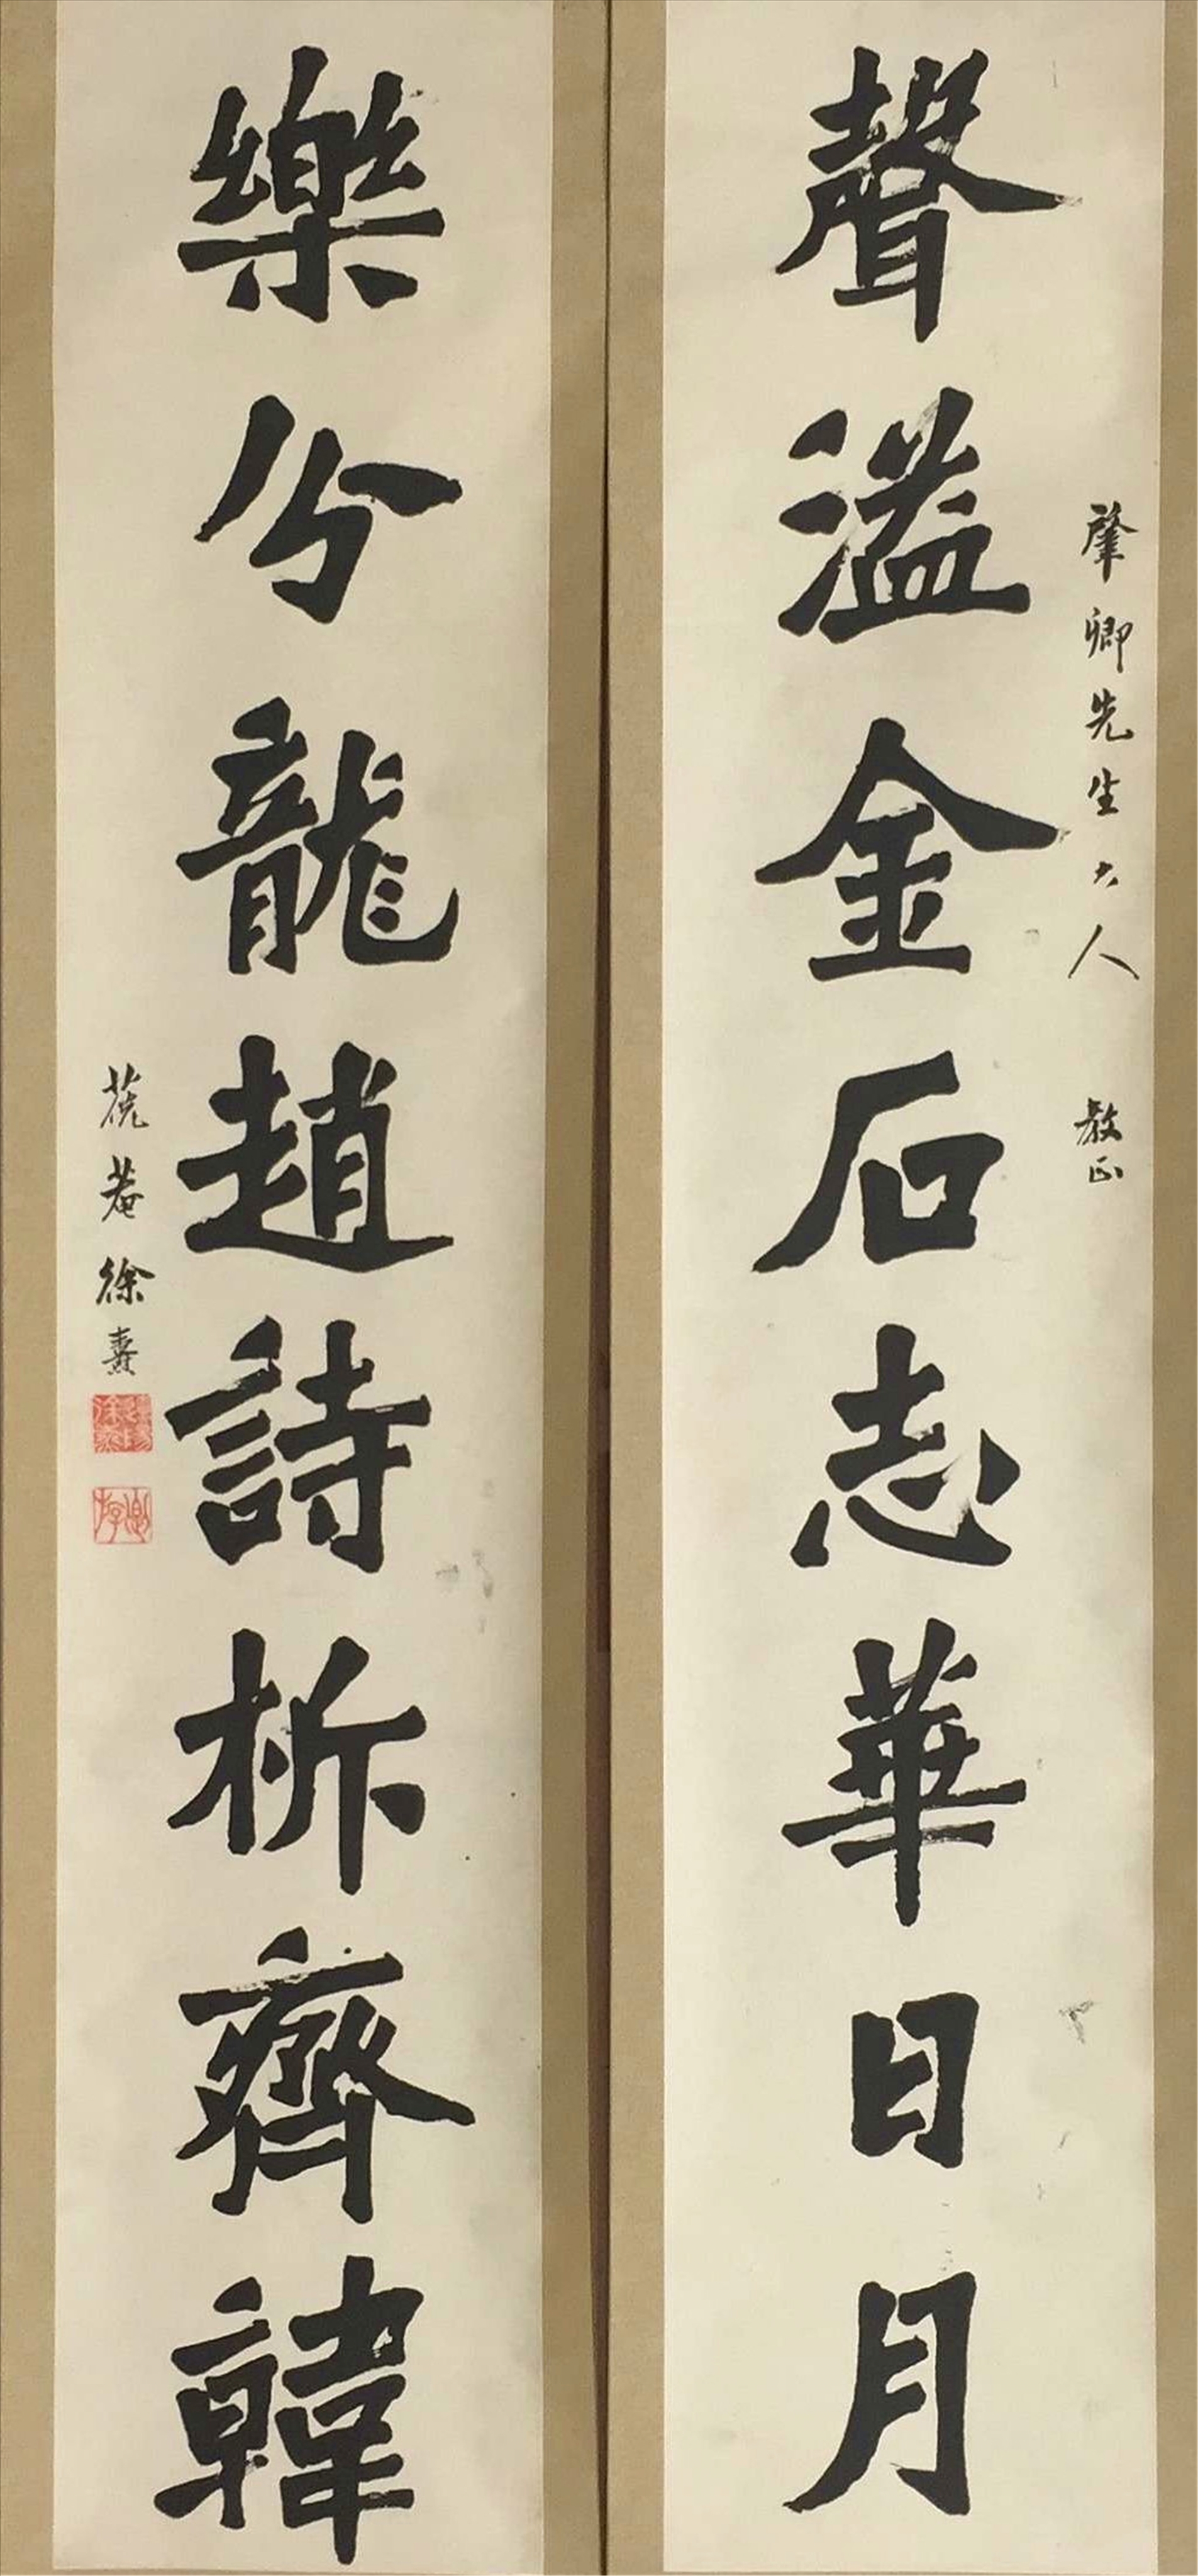 肇卿先生大人 教正
聲溢金石志華日月
樂分龍趙詩析齊韓
徐燾